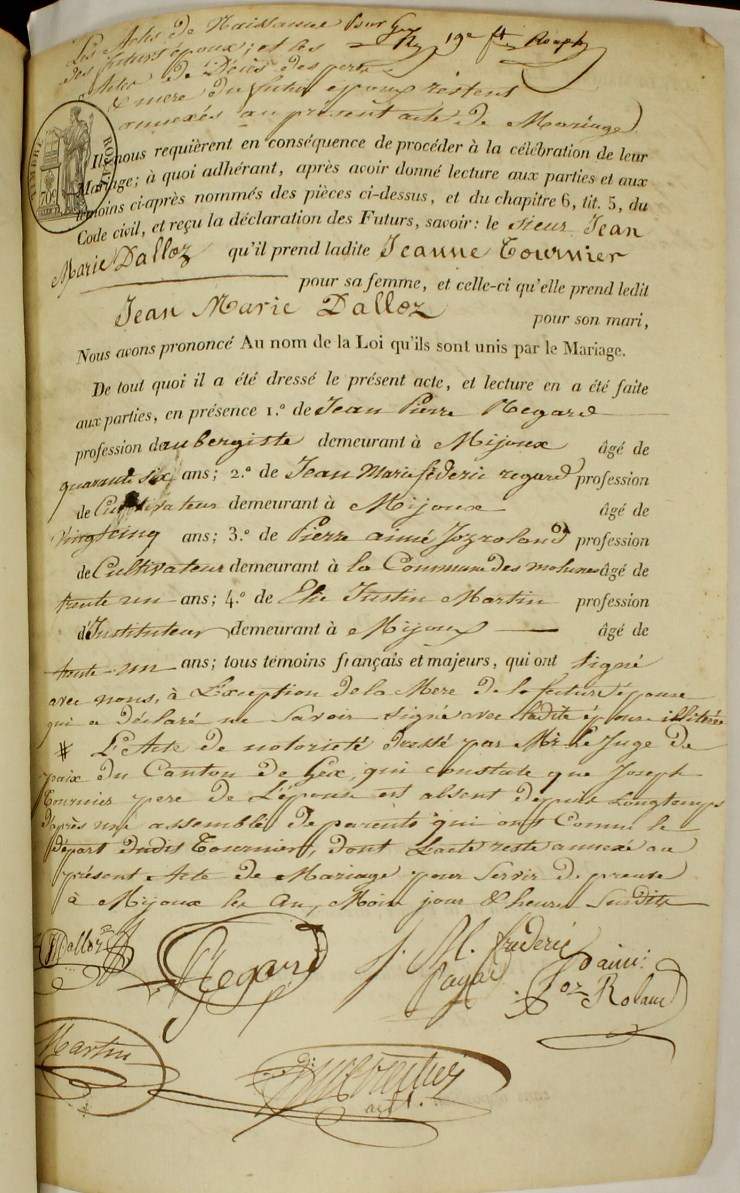 Les Actes de Naissance
des futurs époux; et les
actes de Décès des père
& mere du futur époux restent
annexés au présent acte de Mariage
TIMBRE ROYAL
70
Ils nous requièrent en conséquence de procéder à la célébration de leur
Mariage; à quoi adhérant, après avoir donné lecture aux parties et aux
témoins ci-après nommés des pièces ci-dessus, et du chapitre 6, tit. 5, du
Code civil, et reçu la déclaration des Futurs, savoir: le sieur Jean
Marie Dalloz qu'il prend ladite Jeanne Tournier
pour sa femme, et celle-ci qu'elle prend ledit
Jean Marie Dalloz pour son mari,
Nous avons prononcé Au nom de la Loi qu'ils sont unis par le Mariage.
De tout quoi il a été dressé le présent acte, et lecture en a été faite
aux parties, en présence 1.° de Jean Pierre Regard
profession d'aubergiste demeurant à Mijoux âgé de
quarante six ans; 2.° de Jean Marie féderic regard profession
de Cultivateur demeurant à Mijoux âgé de
vingt cinq ans; 3.° de Pierre aimé Jozroland profession
de Cultivateur demeurant à la Commune des molunes âgé de
trente un ans; 4.° de Elie Justin Martin profession
d'Instituteur demeurant à Mijoux âgé de
trente-un ans; tous témoins français et majeurs, qui ont signé
avec nous, à L'exception de la Mere de la future épouse
qui a déclaré ne Savoir signé avec ladite épouse illitérée
# L'Acte de notorieté dressé par Mr. Le Juge de
paix du Canton de Gex, qui constate que Joseph
Tournier pere de L'épouse est absent depuis Longtemps
d'après une assemblé de parents qui ont Connu le
départ dudit Tournier, dont L'acte reste annexé au
présent Acte de Mariage pour Servir de preuve
à Mijoux les An, Mois jour & heure Susdits
Dalloz
Regard
J. M. frederic
Joz Roland
Martin